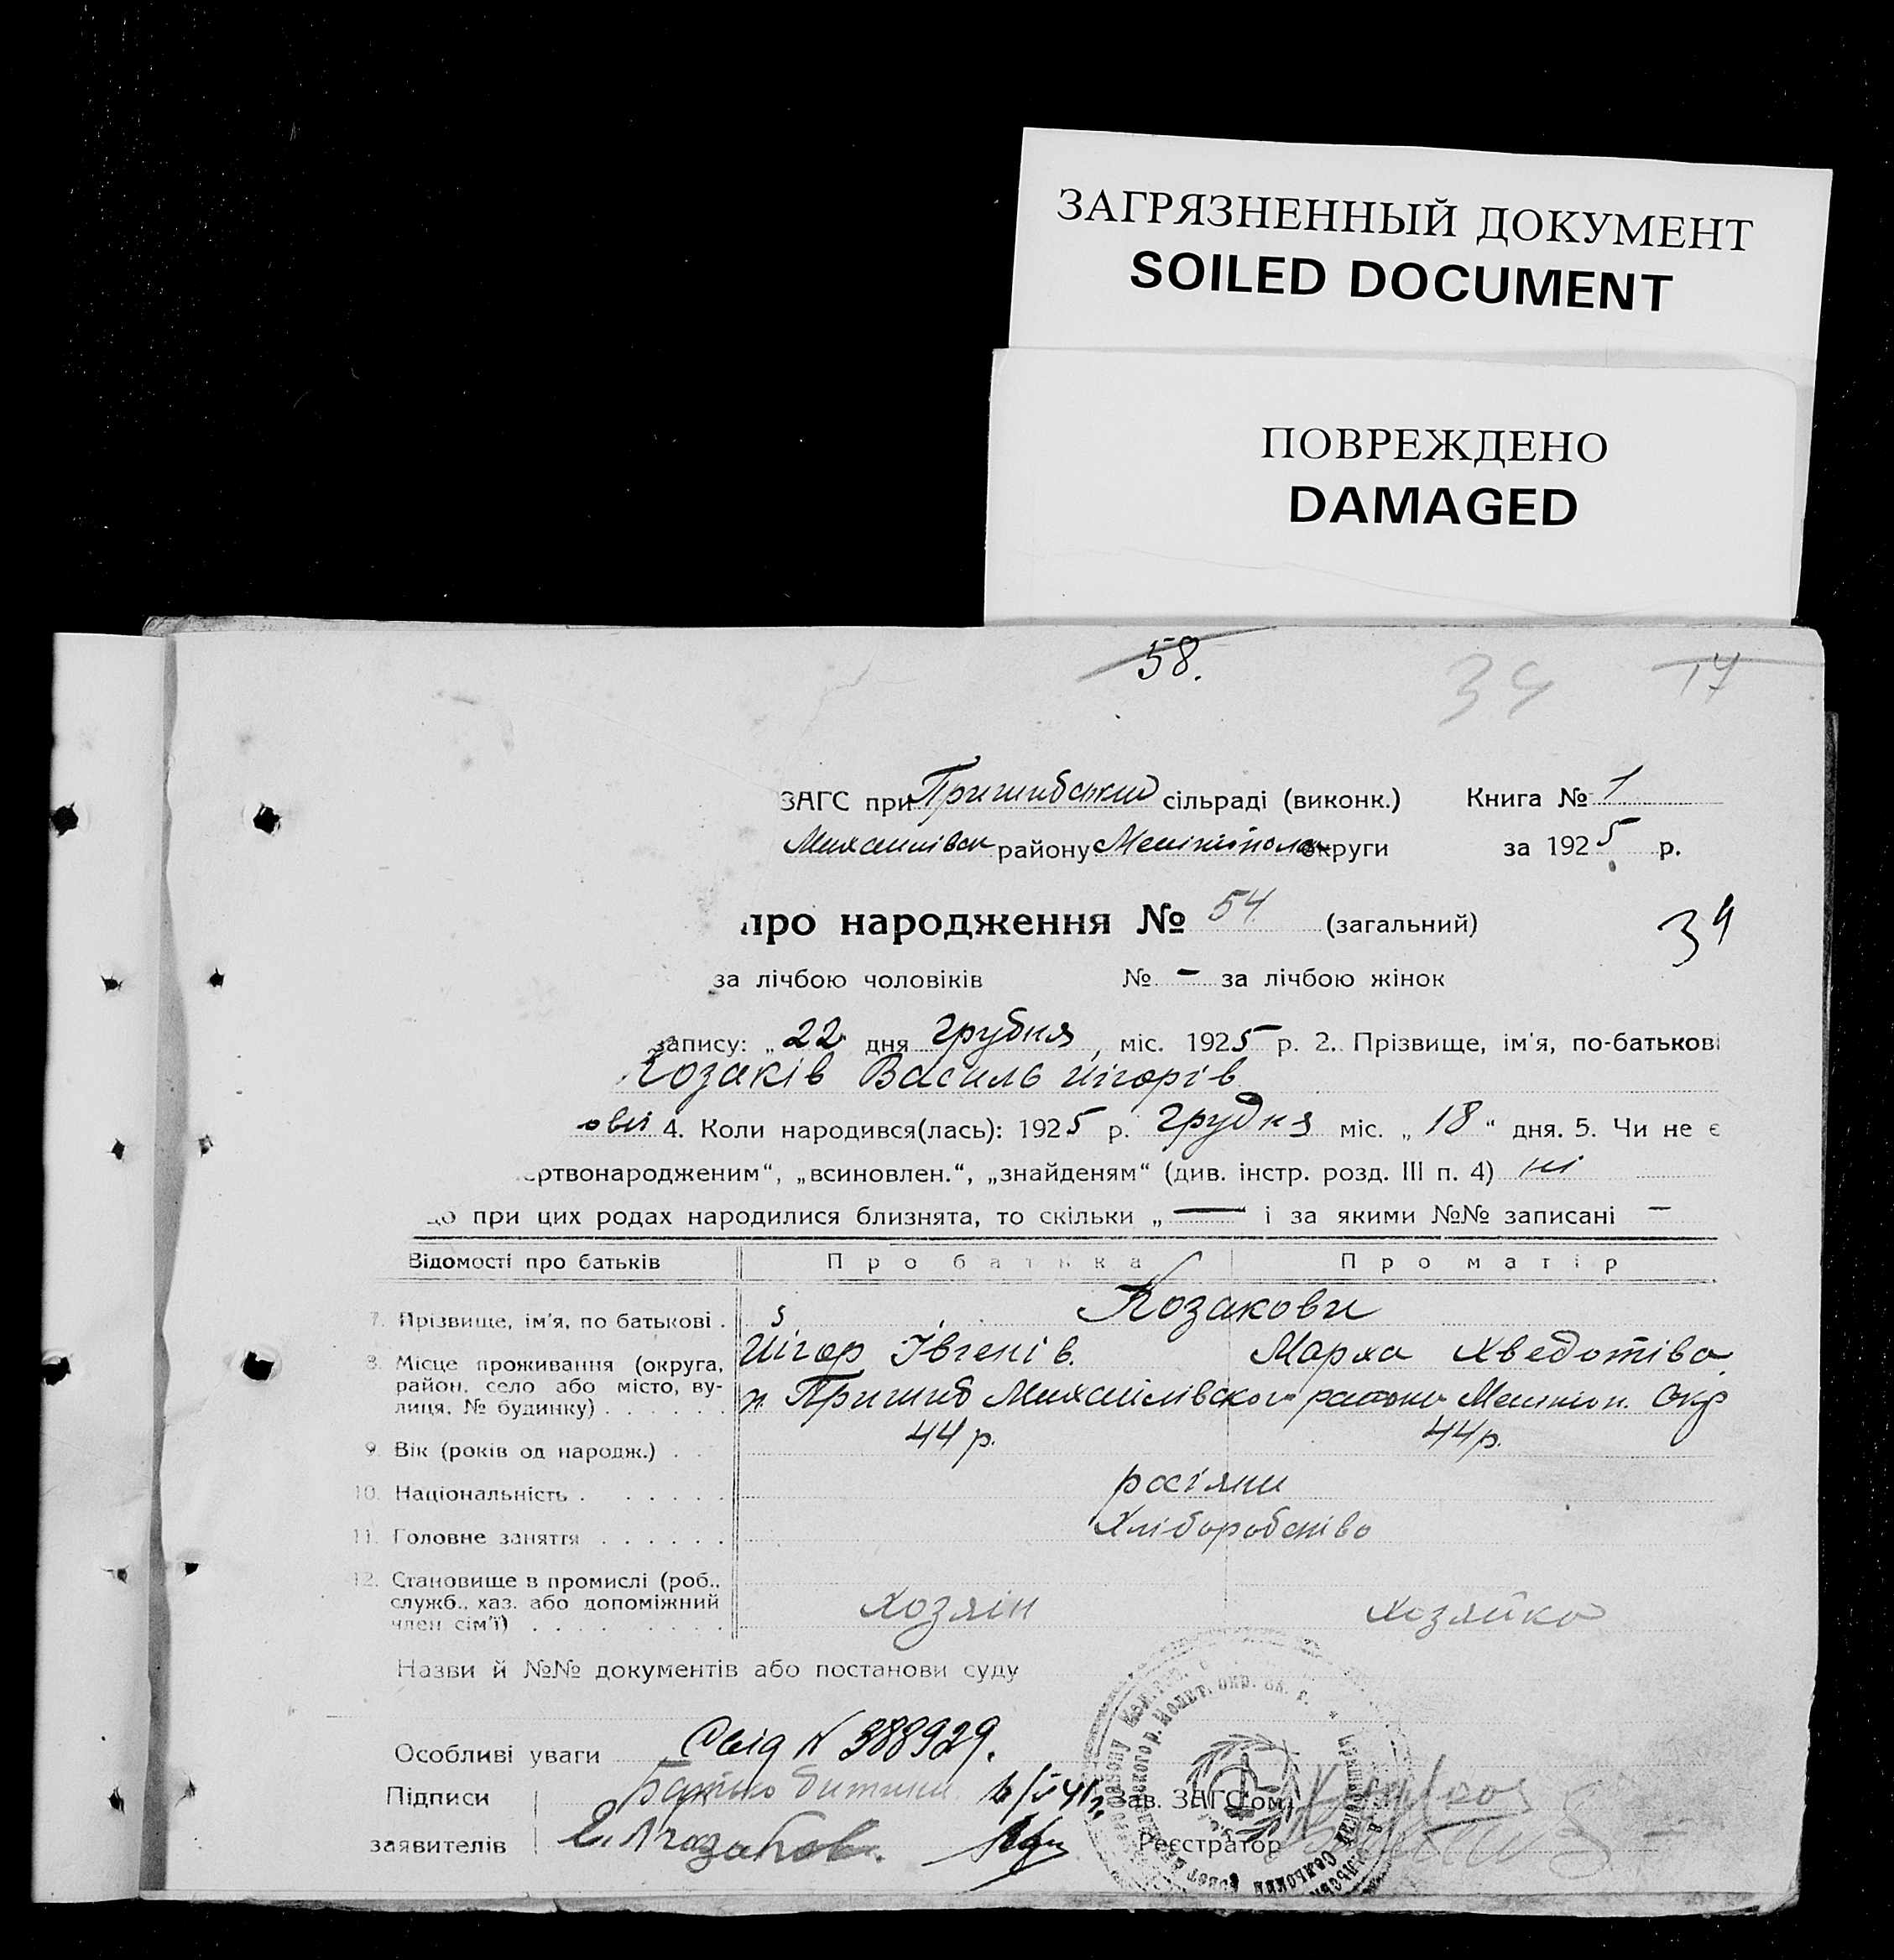 ЗАГРЯЗНЕННЫЙ ДОКУМЕНТ
SOILED DOCUMENT
ПОВРЕЖДЕНО
DAMAGED
58.
34 17
ЗАГС при Пришибській сільраді (виконк.) Книга № 1
Михайлівськ району Мелітопольськ округи за 1925 р.
про народження № 54 (загальний)
34
за лічбою чоловіків № – за лічбою жінок
запису: „ 22 дня грудня, міс. 1925 р. 2. Прізвище, ім'я, по-батькові
Козаків Василь Игорів
4. Коли народився(лась): 1925 р. грудня міс. „ 18 “ дня. 5. Чи не є
ертвонародженим“, „всиновлен.“, „знайденям“ (див. інстр. розд. III п. 4) ні
при цих родах народилися близнята, то скільки „ — “ і за якими №№ записані –
Відомості про батьків Про батька Про матір
7. Прізвище, ім'я, по батькові . Козакови
Игор Івгенів. Марха Хведотіва
8. Місце проживання (округа,
район, село або місто, ву-
лиця, № будинку) . . . . . . Пришиб Михайлівського району Меліт. Окр
9. Вік (років од народж.) . . 44 р. 44 р.
10. Національність . . . . . . росіяни
11. Головне заняття . . . . . . Хліборобство
12. Становище в промислі (роб.,
служб., хаз. або допоміжний
член сім'ї) . . . . . . . . хозяін хозяйка
Назви й №№ документів або постанови суду
Особливі уваги Свід N 388929.
Підписи Зав. ЗАГС'ом
заявителів Реєстратор